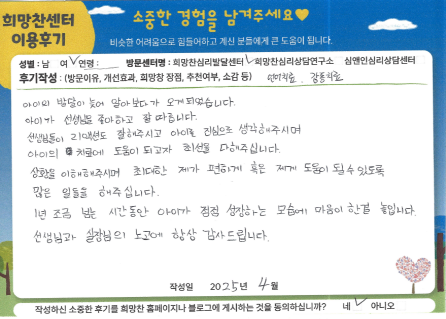 희망찬센터
이용후기
소중한 경험을 남겨주세요♥
비슷한 어려움으로 힘들어하고 계신 분들에게 큰 도움이 됩니다.
성별 : 남 여✓연령 : 방문센터명 : 희망찬심리발달센터✓희망찬심리상담연구소 심앤인심리상담센터
후기작성 : (방문이유, 개선효과, 희망찬 장점, 추천여부, 소감 등) 언어치료, 감통치료
아이의 발달이 늦어 알아보다가 오게되었습니다.
아이가 선생님을 좋아하고 잘 따릅니다.
선생님들이 리액션도 잘해주시고 아이를 진심으로 생각해주시며
아이의 치료에 도움이 되고자 최선을 다해주십니다.
상황을 이해해주시며 최대한 제가 편하게 혹은 제게 도움이 될 수 있도록
많은 일들을 해주십니다.
1년 조금 넘는 시간동안 아이가 점점 성장하는 모습에 마음이 한결 놓입니다.
선생님과 실장님의 노고에 항상 감사드립니다.
작성일 2025년 4월
작성하신 소중한 후기를 희망찬 홈페이지나 블로그에 게시하는 것을 동의하십니까? 네✓ 아니오